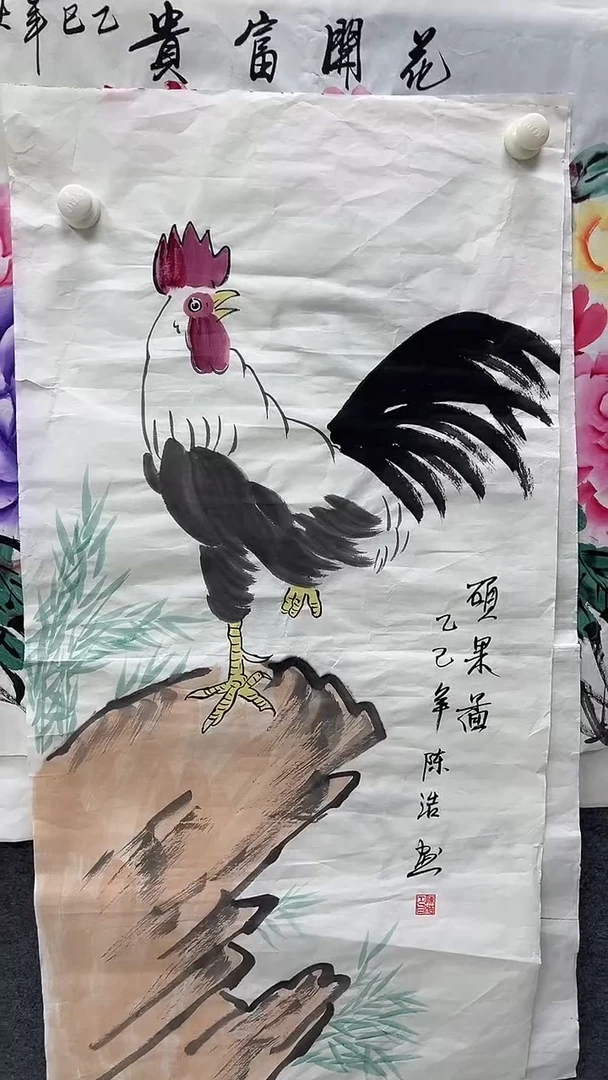 花開富貴
乙巳年
碩果圖
乙巳年陈浩画